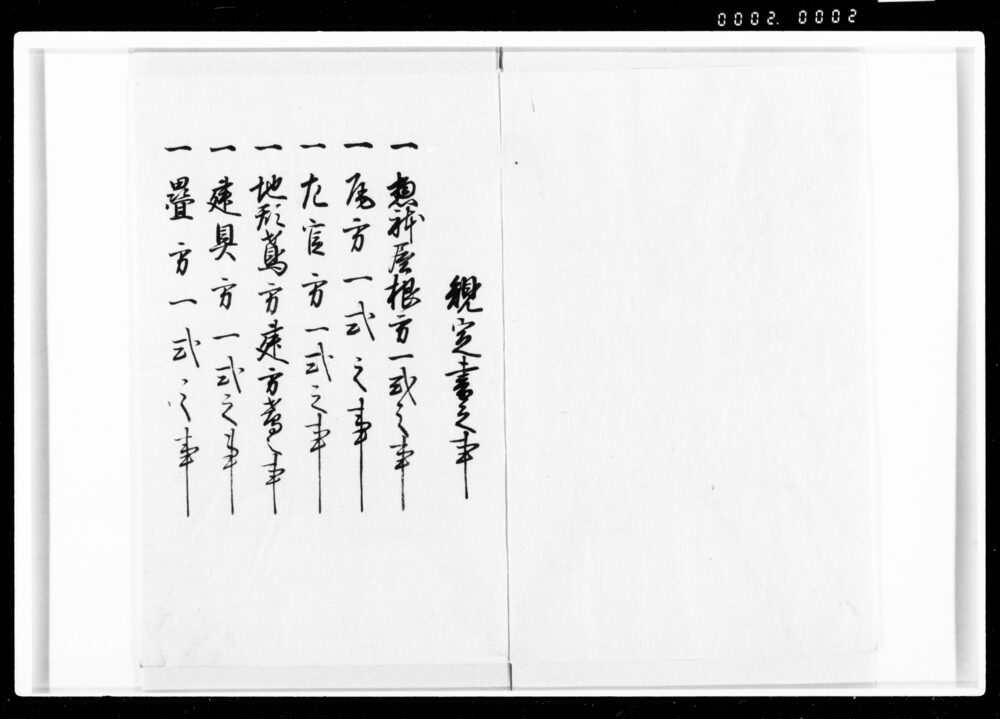 0002. 0002
規定書之事
一 惣躰屋根方一式之事
一 方一式之事
一 左官方一式之事
一 地形鳶方建方之事
一 建具方一式之事
一 疊方一式之事